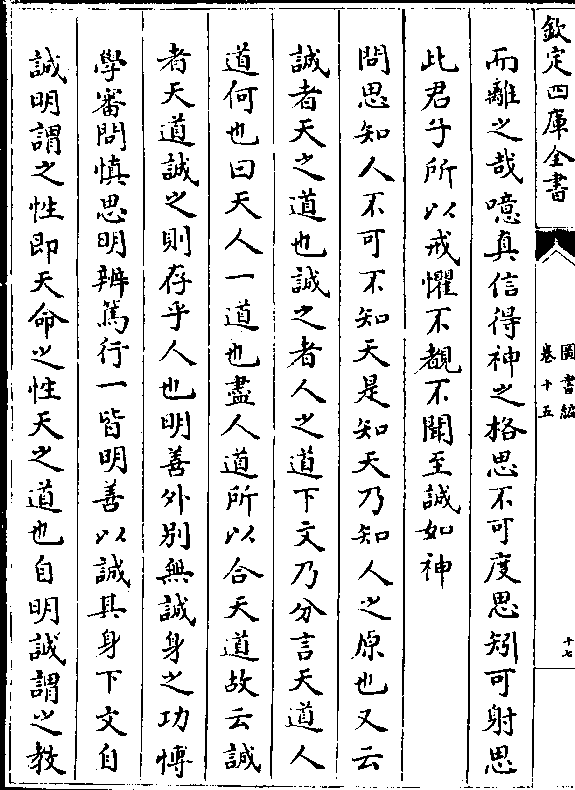 欽定四庫全書
圖書編
卷十五
十七
而離之哉噫真信得神之格思不可度思矧可射思
此君子所以戒懼不覩不聞至誠如神
問思知人不可不知天是知天乃知人之原也又云
誠者天之道也誠之者人之道下文乃分言天道人
道何也曰天人一道也盡人道所以合天道故云誠
者天道誠之則存乎人也明善外别無誠身之功博
學審問慎思明辨篤行一皆明善以誠其身下文自
誠明謂之性即天命之性天之道也自明誠謂之教